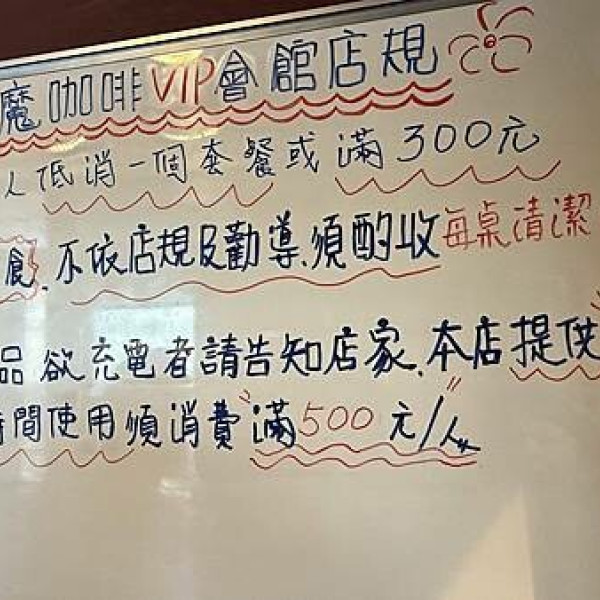 魔咖啡VIP會館店規
人低消一個套餐或滿300元
食、不依店規及勸導、須酌收每桌清潔
品欲充電者請告知店家、本店提供
時間使用須消費"滿500元/人"